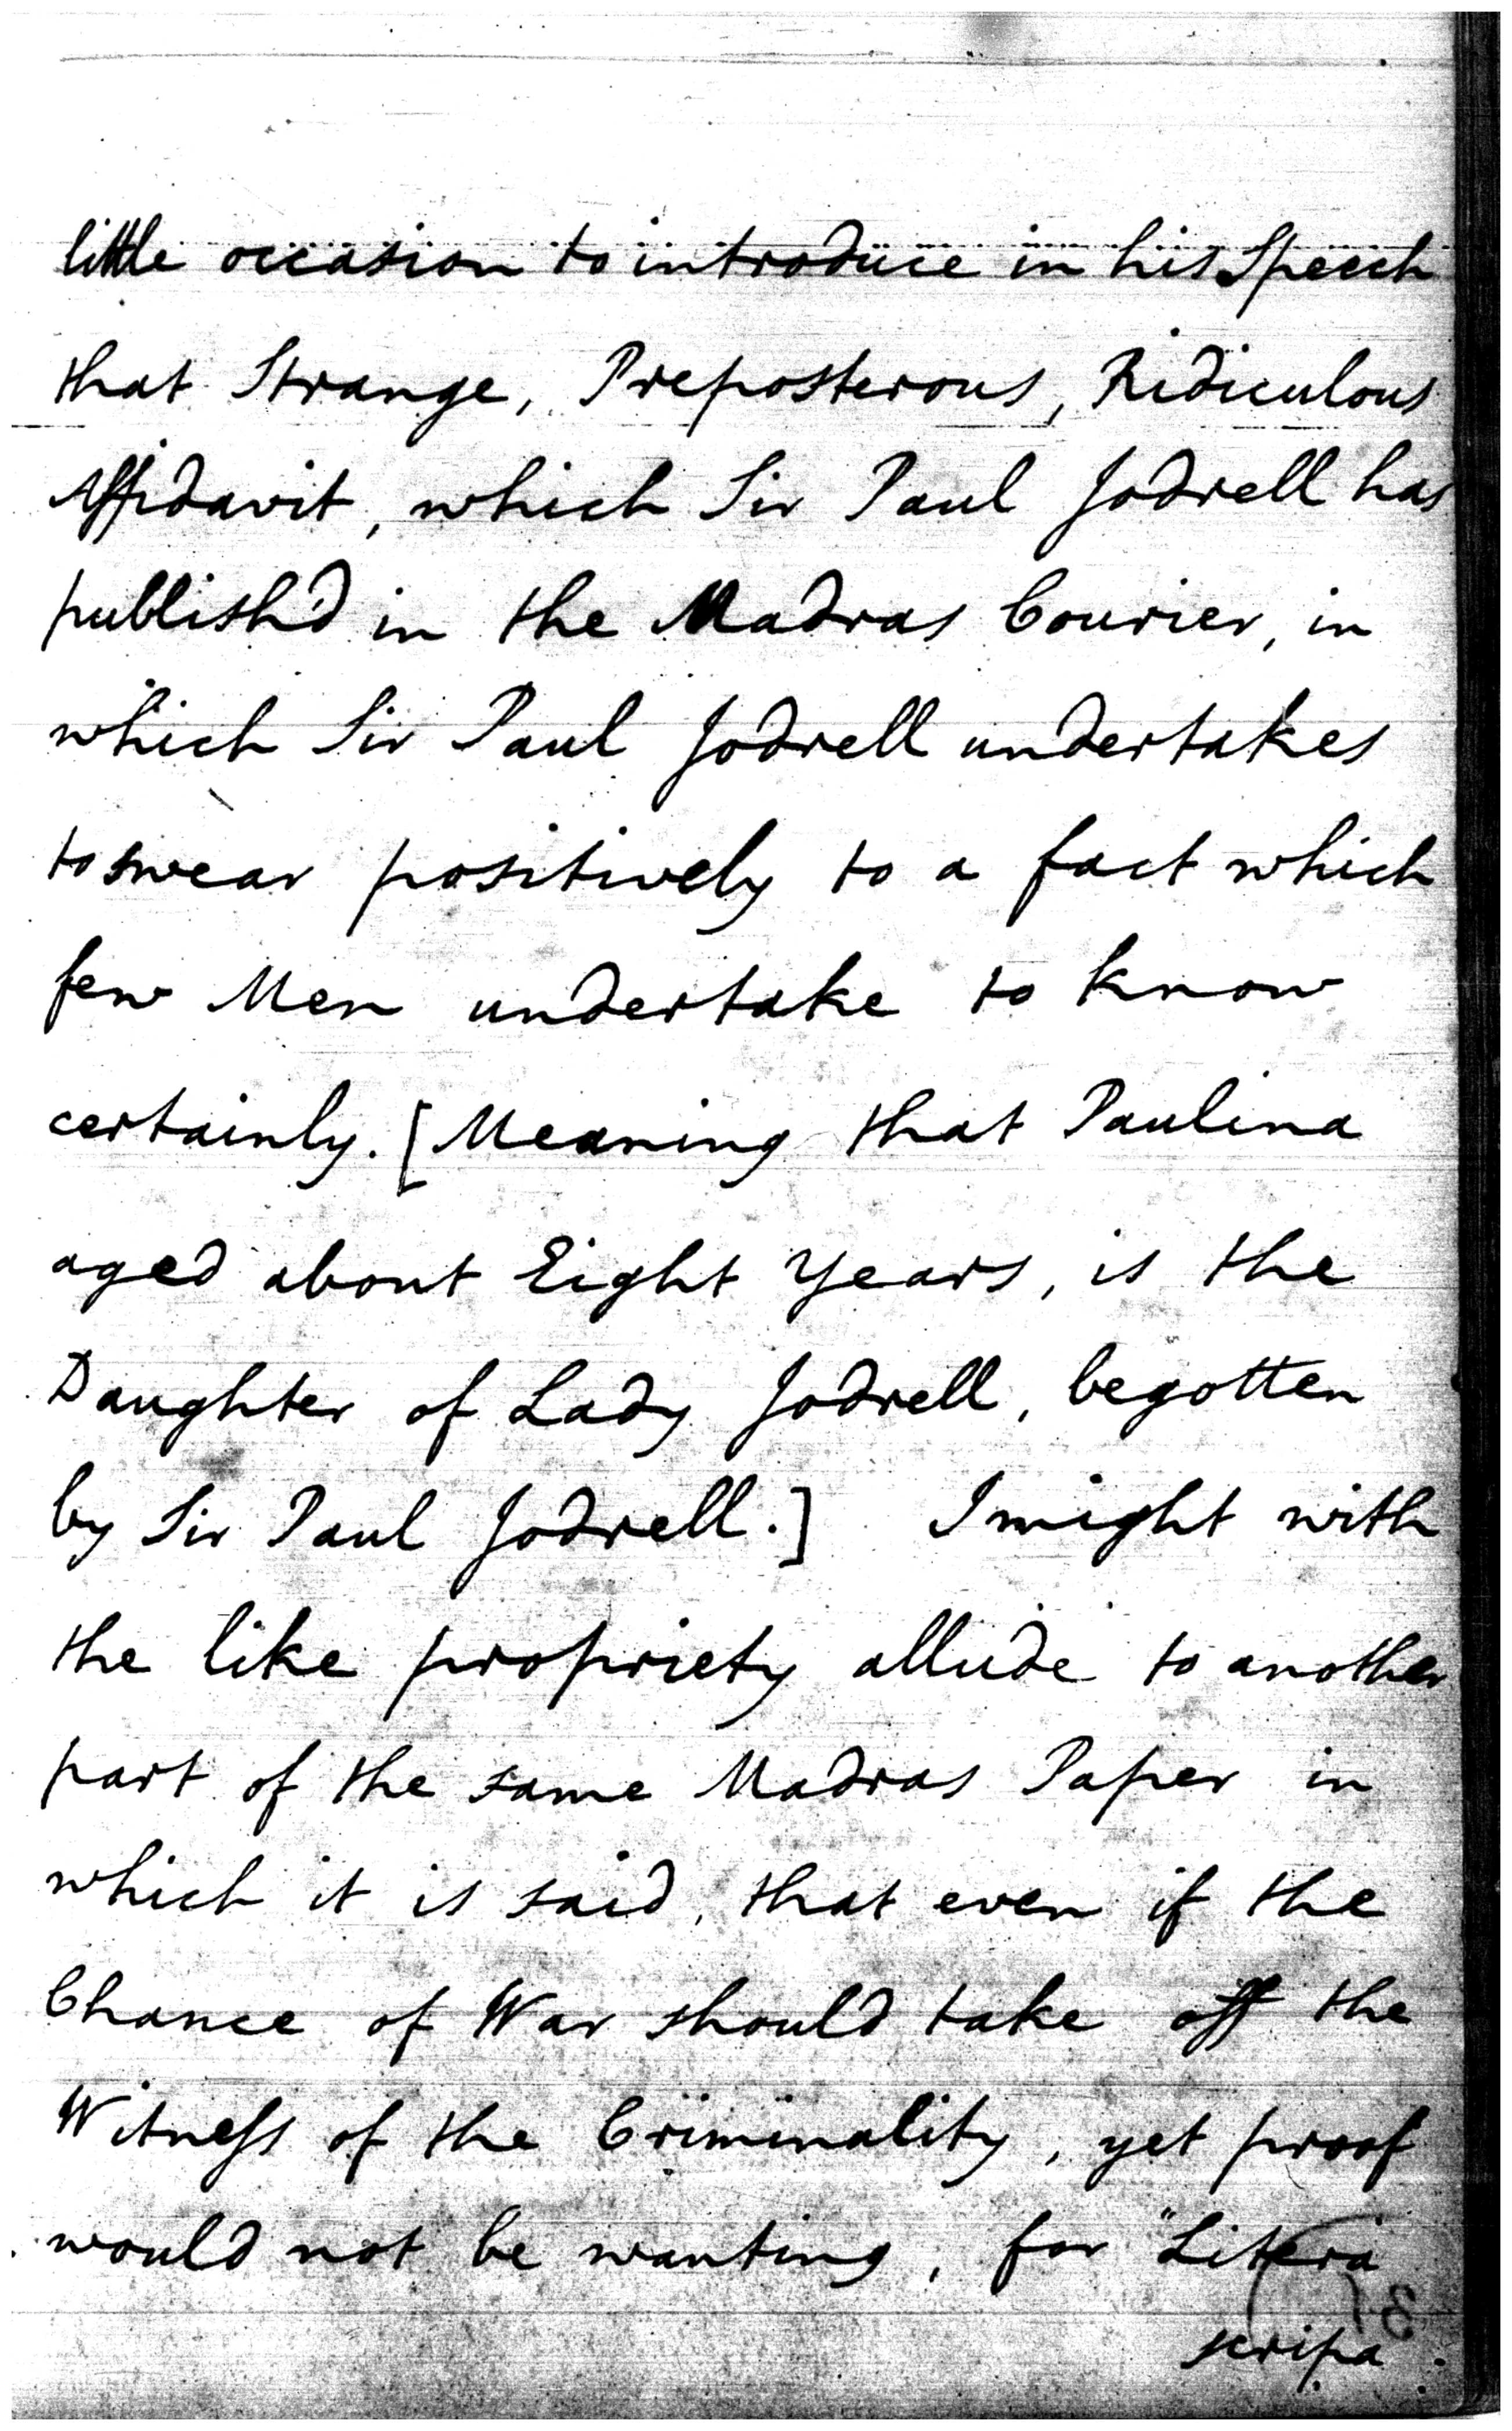 little occasion to introduce in his Speech
that Strange, Preposterous, Ridiculous
Affidavit, which Sir Paul Jodrell has
publish'd in the Madras Courier, in
which Sir Paul Jodrell undertakes
to swear positively to a fact which
few Men undertake to know
certainly. [Meaning that Paulina
aged about Eight Years, is the
Daughter of Lady Jodrell, begotten
by Sir Paul Jodrell.] I might with
the like propriety allude to another
part of the same Madras Paper in
which it is said, that even if the
Chance of War should take off the
Witness of the Criminality, yet proof
would not be wanting, for "Litera
scripa